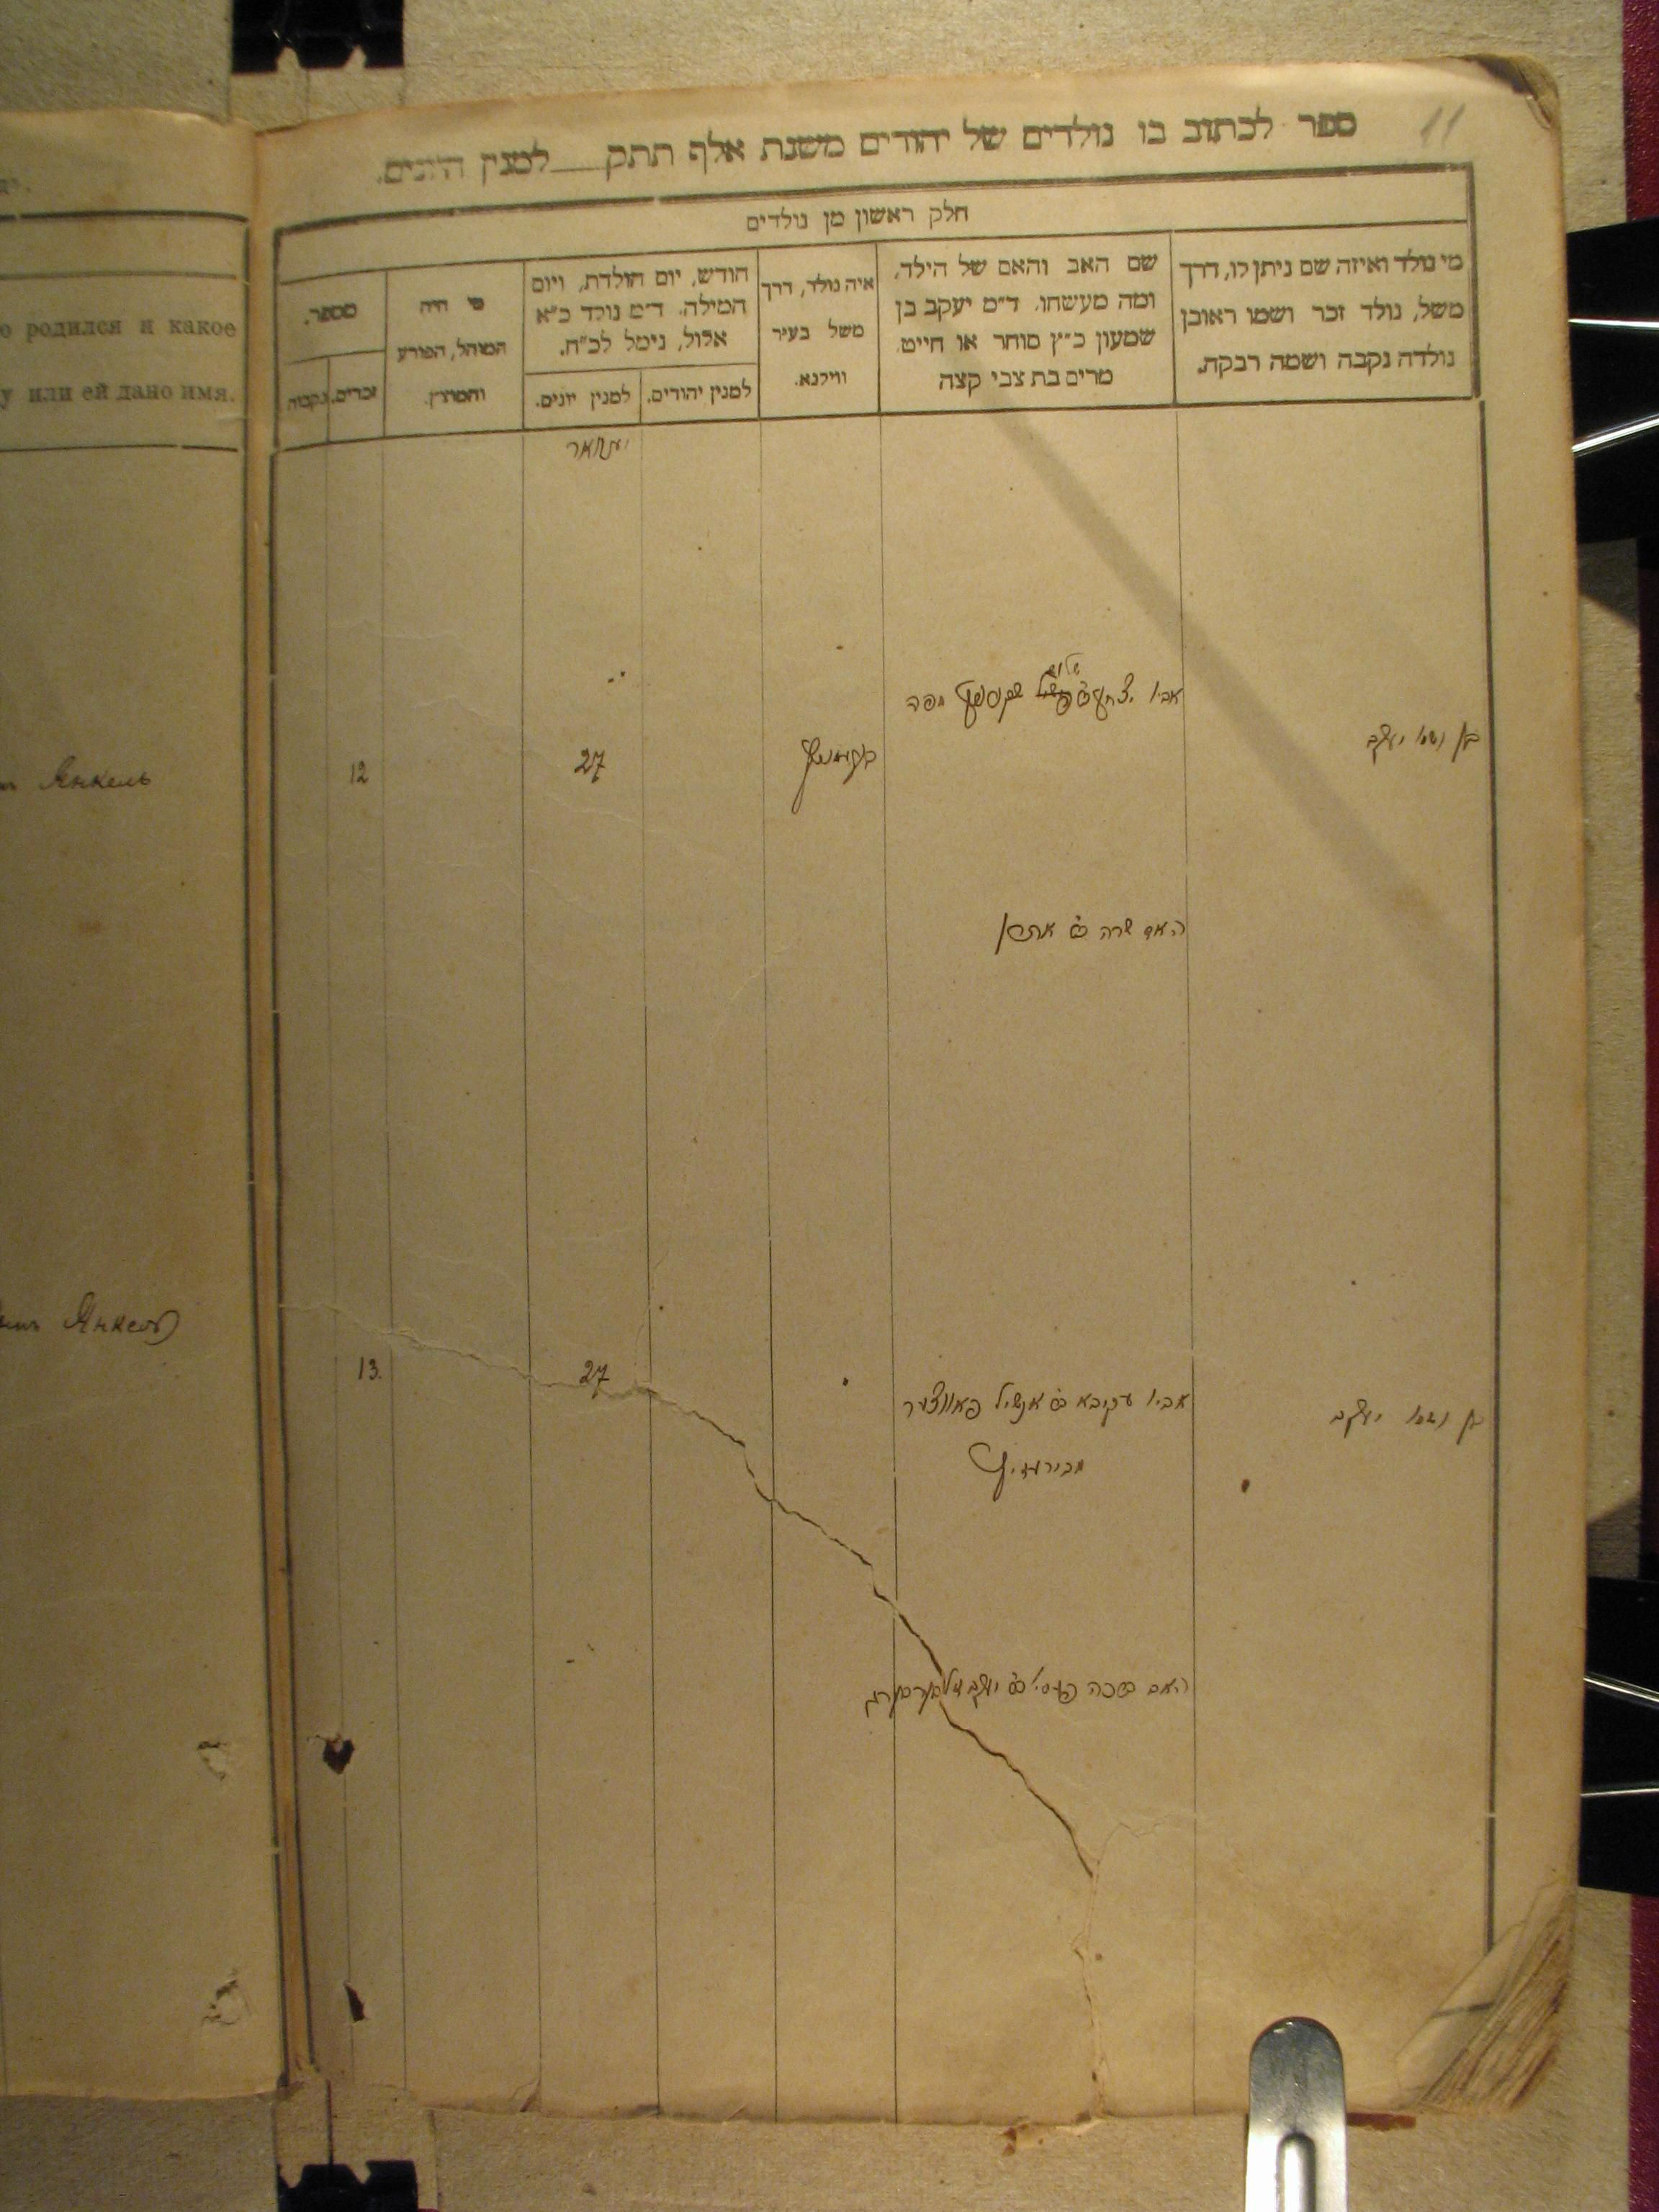 11
ספר לכתוב בו נולדים של יהודים משנת אלף תתק למנין היונים.
חלק ראשון מן נולדים
מי נולד ואיזה שם ניתן לו, דרך
משל, נולד זכר ושמו ראובן
נולדה נקבה ושמה רבקה.
שם האב והאם של הילד,
ומה מעשהו. ד"מ יעקב בן
שמעון כ"ץ סוחר או חייט.
מרים בת צבי קצה
איה נולד, דרך
משל בעיר
ווילנא.
חודש, יום הולדת, ויום
המילה. ד"מ נולד כ"א
אלול, נימל לכ"ח.
למנין יהודים.
למנין יונים.
מי היה
המוהל, הפורע
והמוצץ.
מספר.
זכרים.
נקבות
о родился и какое
у или ей дано имя.
יאנואר
בן ושמו יעקב
אביו
יפה
27
12
Янкель
האם שרה
בן ושמו יעקב
אביו עקיבא אנשיל
27
13.
Янкель
האם
יעקב